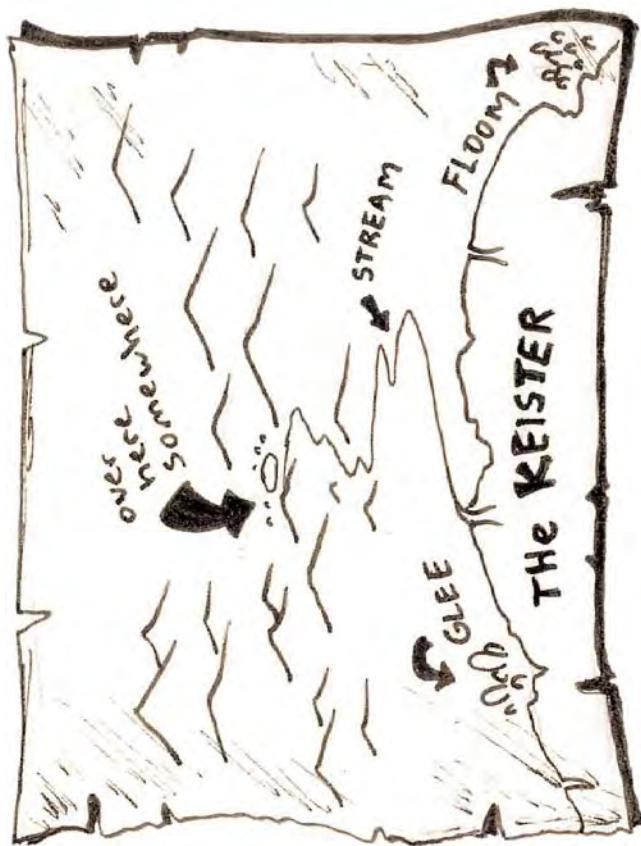 over
here
somewhere
STREAM
GLEE
FLOOM
THe KEISTER